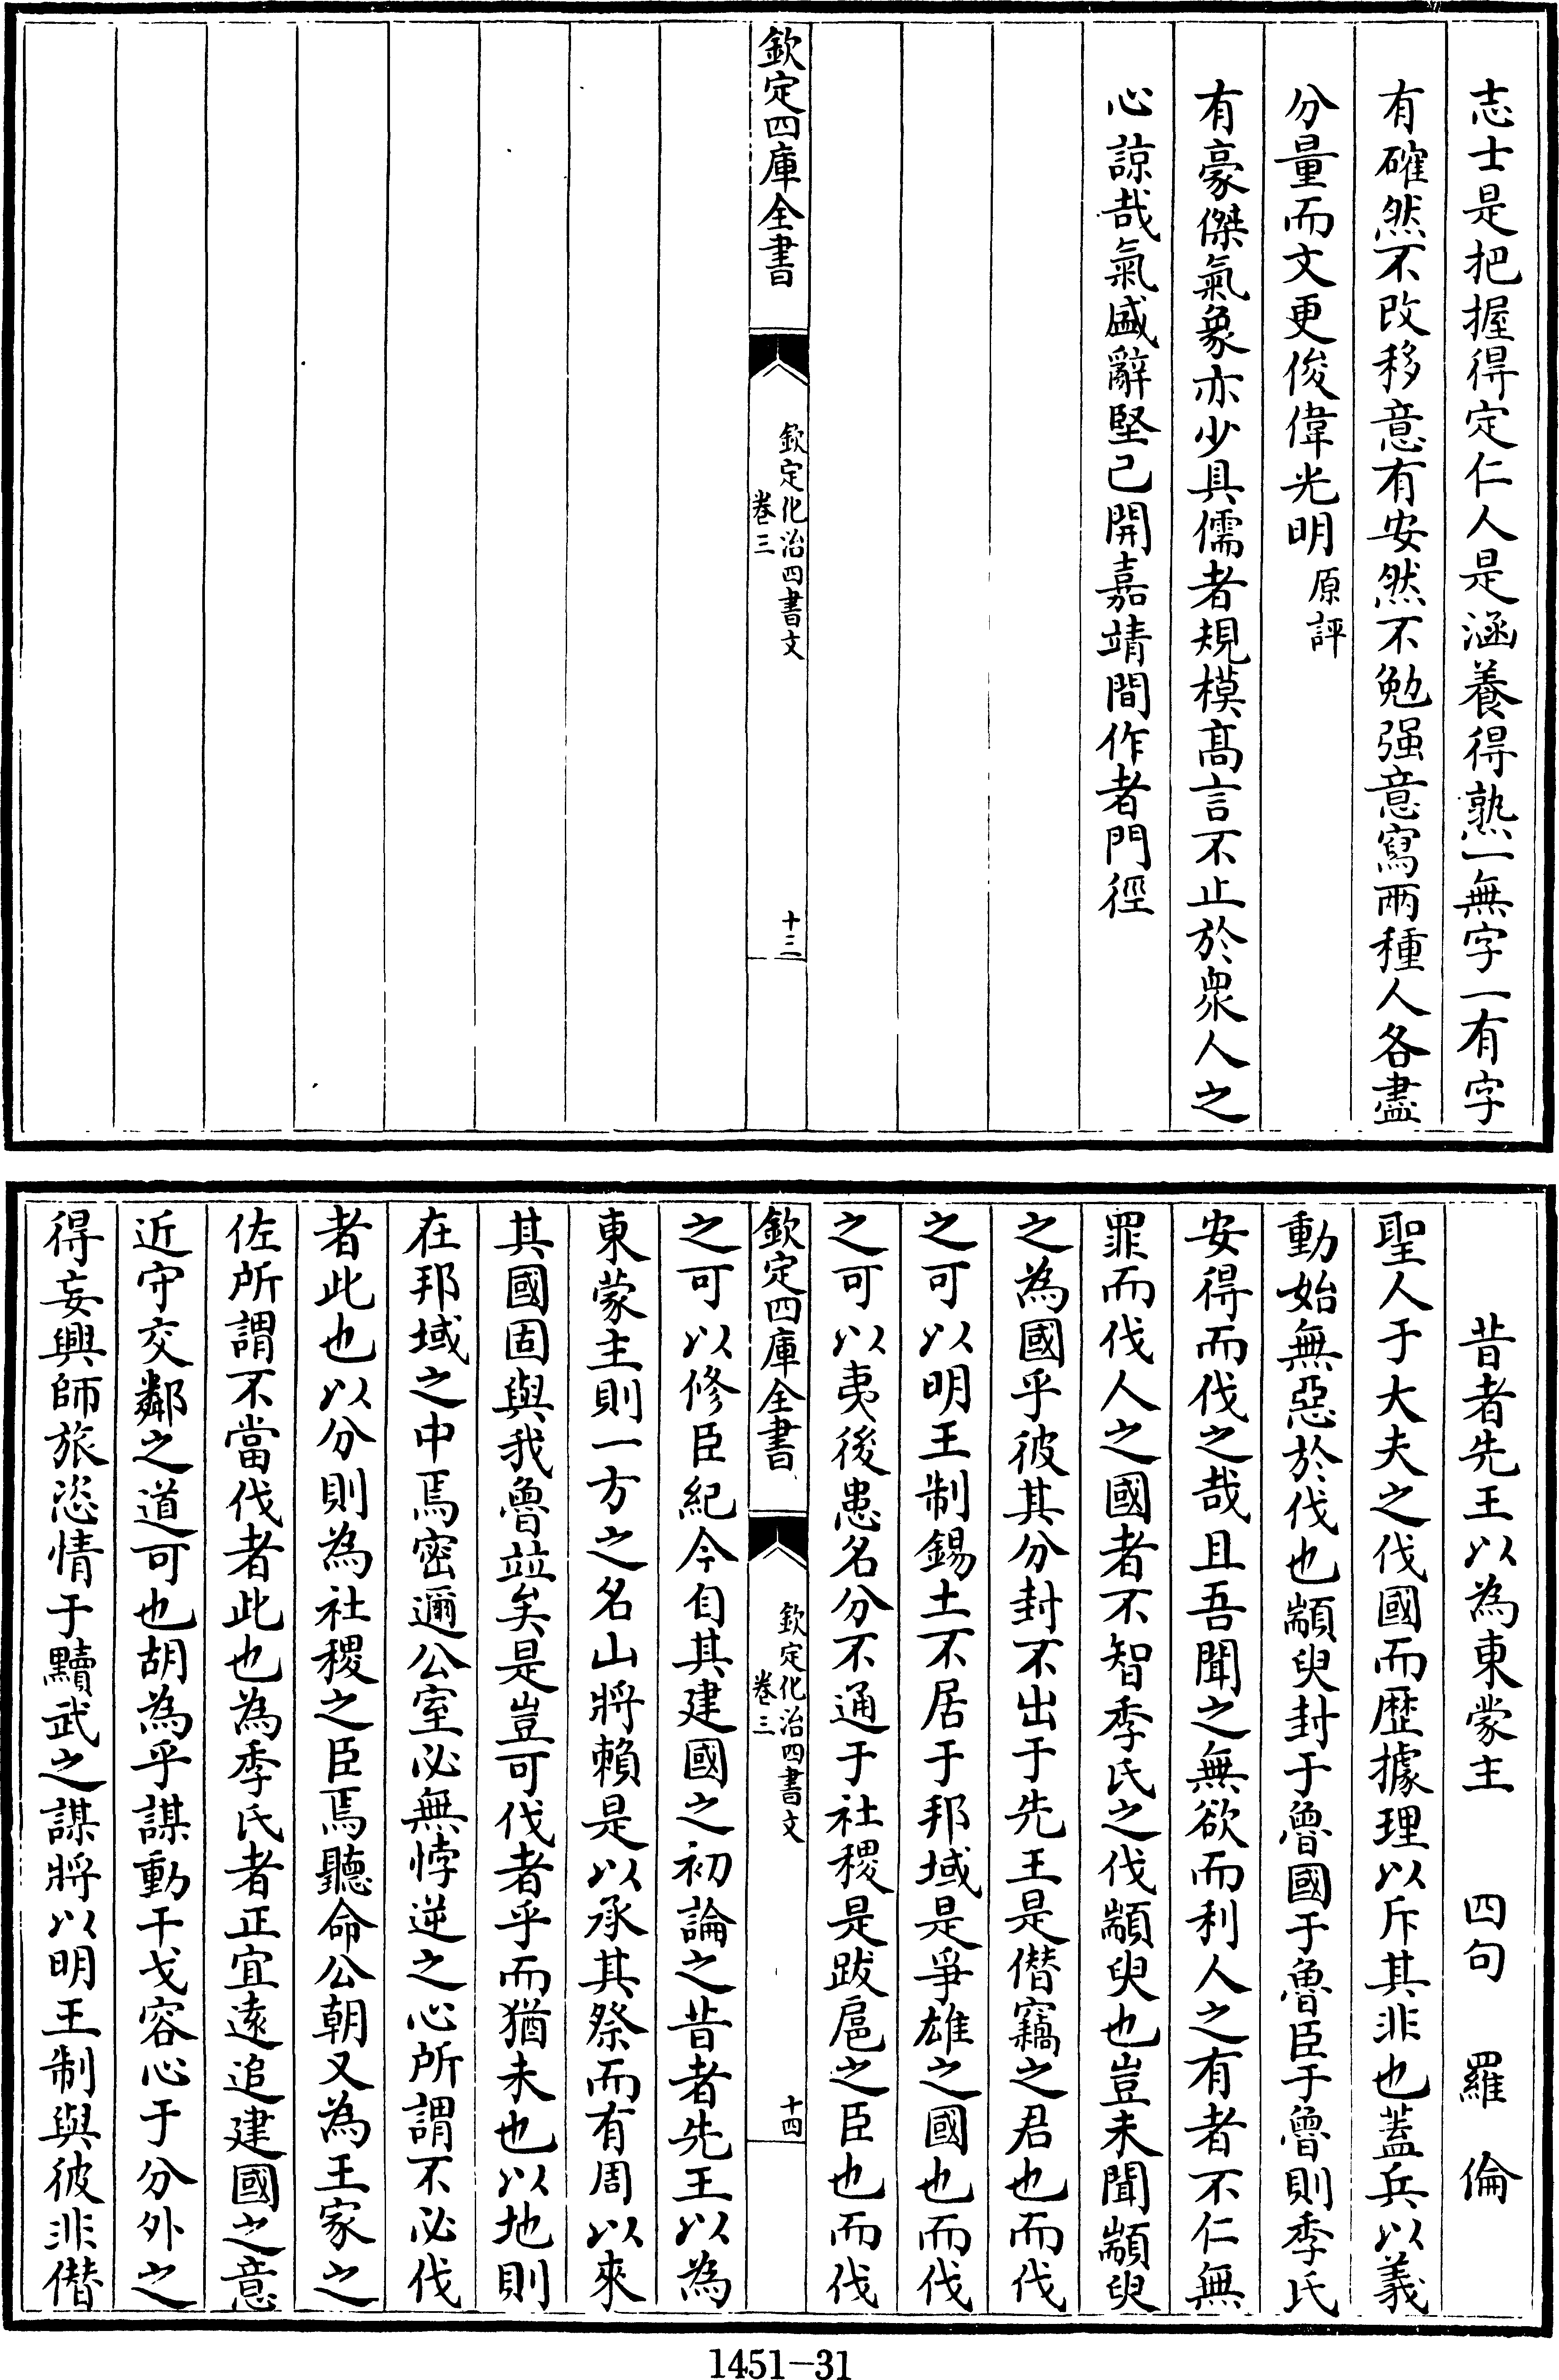 志士是把握得定仁人是涵養得熟一無字一有字
有確然不改移意有安然不勉强意寫兩種人各盡
分量而文更俊偉光明原評
有豪傑氣象亦少具儒者規模髙言不止於衆人之
心諒哉氣盛辭堅已開嘉靖間作者門徑
欽定四庫全書
欽定化治四書文
卷三
十三
昔者先王以為東蒙主 四句 羅倫
聖人于大夫之伐國而歴據理以斥其非也蓋兵以義
動始無惡於伐也顓臾封于魯國于魯臣于魯則季氏
安得而伐之哉且吾聞之無欲而利人之有者不仁無
罪而伐人之國者不智季氏之伐顓臾也豈未聞顓臾
之為國乎彼其分封不出于先王是僭竊之君也而伐
之可以明王制錫土不居于邦域是爭雄之國也而伐
之可以夷後患名分不通于社稷是跋扈之臣也而伐
欽定四庫全書
欽定化治四書文
卷三
十四
之可以修臣紀今自其建國之初論之昔者先王以為
東蒙主則一方之名山將賴是以承其祭而有周以來
其國固與我魯竝矣是豈可伐者乎而猶未也以地則
在邦域之中焉密邇公室必無悖逆之心所謂不必伐
者此也以分則為社稷之臣焉聽命公朝又為王家之
佐所謂不當伐者此也為季氏者正宜逺追建國之意
近守交鄰之道可也胡為乎謀動干戈容心于分外之
得妄興師旅恣情于黷武之謀將以明王制與彼非僭
1451-31